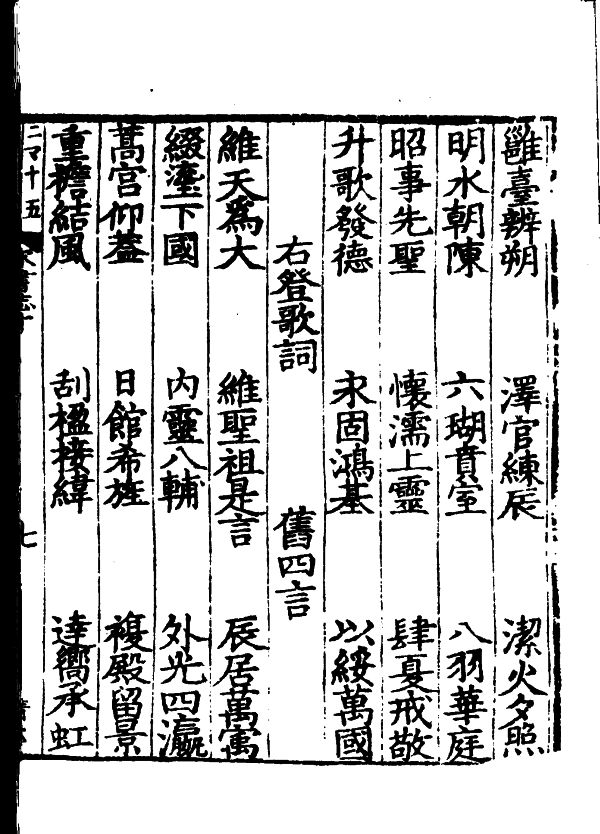 雝臺辨朔 澤宮練辰 潔火夕照
明水朝陳 六瑚賁室 八羽華庭
昭事先聖 懷濡上靈 肆夏戒敬
升歌發德 永固鴻基 以綏萬國
右登歌詞 舊四言
維天爲大 維聖祖是言 辰居萬㝢
綴瀍下國 內靈八輔 外光四瀛
蒿宮仰蓋 日館希旌 複殿留景
重檐結風 刮楹接緯 達嚮承虹
七